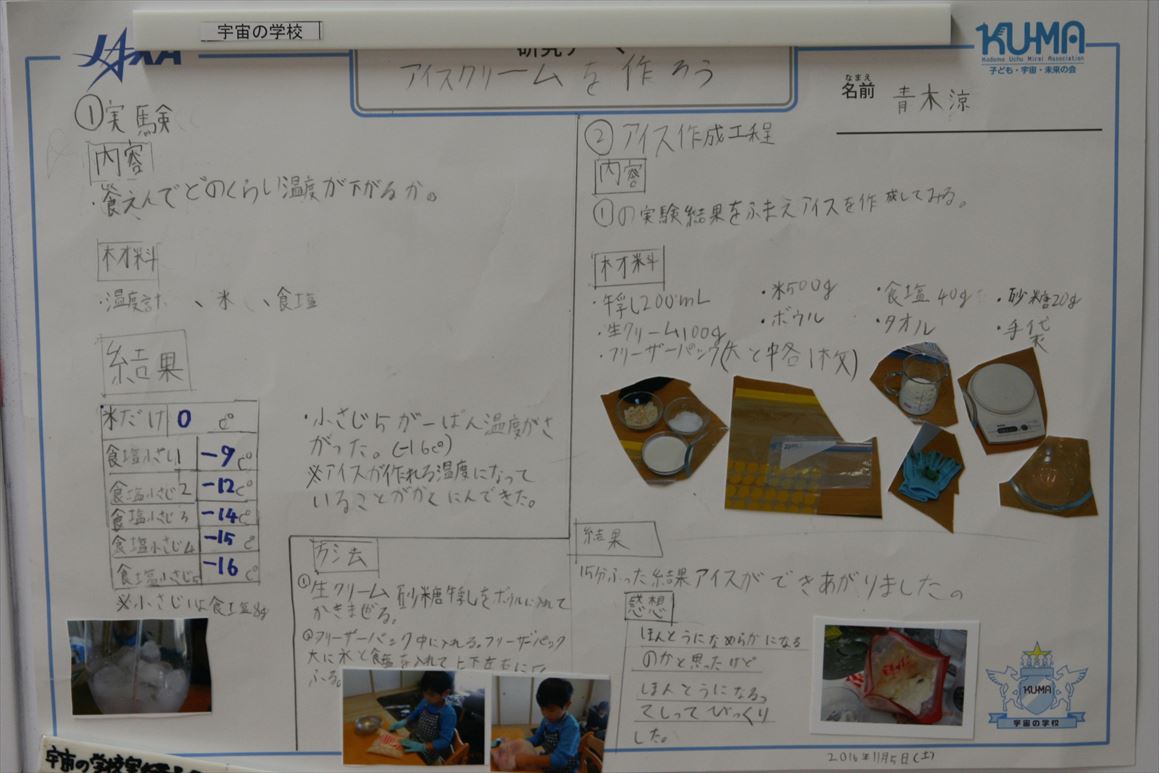 宇宙の学校
JAXA
KU-MA
Kodomo Uchu Mirai Association
子ども・宇宙・未来の会
アイスクリームを作ろう
なまえ
名前 青木涼
①実験
内容
・食えんでどのくらい温度が下がるか。
材料
・温度計、氷、食塩
結果
氷だけ 0 c°
食塩小さい1 -9 c°
食塩小さじ2 -12 c°
食塩小さじ3 -14 c°
食塩小さじ4 -15 c°
食塩小さじ5 -16 c°
※小さじ1は食塩8g
・小さじ5が一ばん温度がさ
がった。(-16c°)
※アイスが作れる温度になって
いることがかくにんできた。
方法
①生クリーム砂糖牛乳をボウルに入れて
かきまぜる。
②フリーザーパック中に入れる。フリーザパック
大に氷と食塩を入れて上下左右に
ふる。
②アイス作成工程
内容
①の実験結果をふまえアイスを作成してみる。
材料
・牛乳200mL ・氷500g ・食塩40g ・砂糖20g
・生クリーム100g ・ボウル ・タオル ・手袋
・フリーザーパック(大と中各1枚)
結果
15分ふった結果アイスができあがりました。
感想
ほんとうになめらかになる
のかと思ったけど
ほんとうになるっ
てしってびっくり
した。
KUMA
宇宙の学校
2016年11月5日(土)